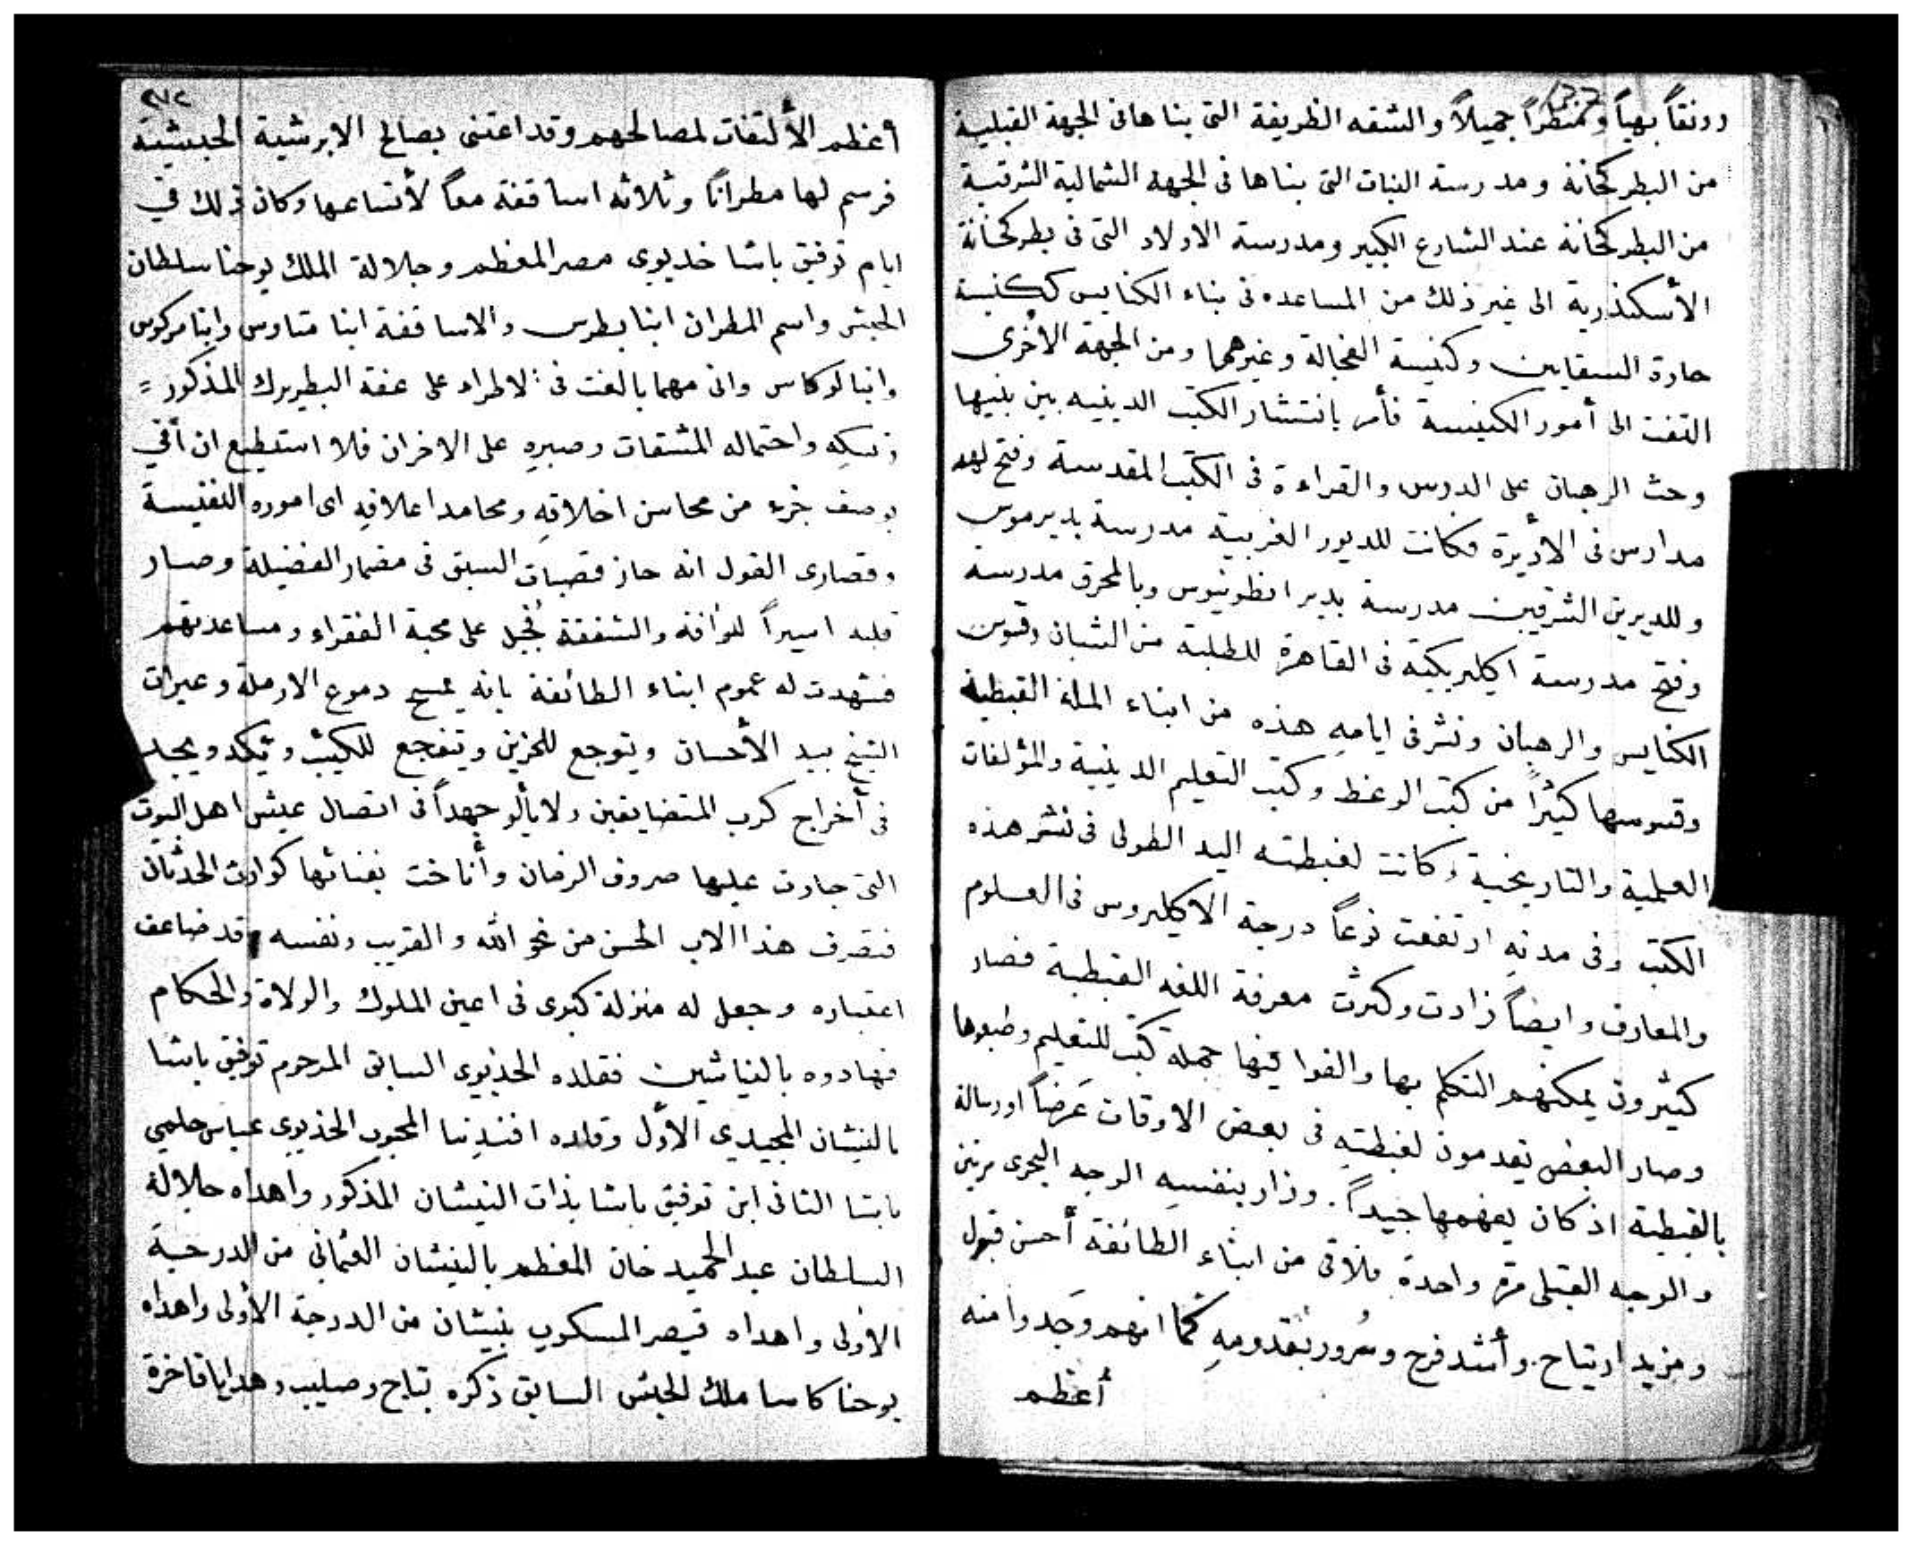 رونقاً بهياً ومنظراً جميلاً والشقه الظريفة التى بناها فى الجهة القبلية
من البطركخانة ومدرسة البنات التى بناها فى الجهة الشمالية الشرقية
من البطركخانه عند الشارع الكبير ومدرسة الاولاد التى فى بطركخانة
الأسكندرية الى غير ذلك من المساعده فى بناء الكنايس ككنيسة
حارة السقايين وكنيسة الفجالة وغيرهما ومن الجهة الأخرى
التفت الى أمور الكنيسة فأمر بانتشار الكتب الدينيه بين بنيها
وحث الرهبان على الدرس والقراءة فى الكتب المقدسة وفتح لهم
مدارس فى الأديرة فكانت للديور الغربية مدرسة بديرموس
وللديرين الشرقيين مدرسة بدير انطونيوس وبالمحرق مدرسة
وفتح مدرسة اكليريكية فى القاهرة للطلبة من الشبان وقسوس
الكنايس والرهبان ونشر فى ايامهِ هذه من ابناء الملة القبطية
وقسوسها كثيراً من كتب الوعظ وكتب التعليم الدينية والمؤلفات
العلمية والتاريخية وكانت لغبطته اليد الطولى فى نشر هذه
الكتب وفى مدتهِ ارتفعت نوعاً درجة الاكليروس فى العلوم
والمعارف وايضاً زادت وكثرت معرفة اللغه القبطية فصار
كثيرون يمكنهم التكلم بها والفوا فيها جملة كتب للتعليم وطبعوها
وصار البعض يقدمون لغبطتهِ فى بعض الاوقات عَرضاً او رسالة
بالقبطية اذ كان يفهمها جيداً. وزار بنفسهِ الوجه البحرى مرتين
والوجه القبلى مرة واحدة فلاقى من ابناء الطائفة أحسن قبول
ومزيد ارتياح. وأشد فرح وسُرور بقدومهِ كما انهم وَجَدوا منه
أعظم
٢٧٢
أعظم الألتفات لمصالحهم وقد اعتنى بصالح الابرشية الحبشية
فرسم لها مطراناً وثلاثه اساقفة معاً لأتساعها وكان ذلك في
ايام توفيق باشا خديوى مصر المعظم وجلالة الملك يوحنا سلطان
الحبش واسم المطران ابنا بطرس والاساقفة ابنا متاوس وابنا مركوس
وانبا لوكاس وانى مهما بالغت فى الاطراء على عفة البطريرك المذكور =
ونسكِه واحتماله المشقات وصبرهِ على الاحزان فلا استطيع ان أفي
بوصف جزء من محاسن اخلاقهِ ومحامد اعلاقهِ اى اموره النفيسة
وقصارى القول انه حاز قصبات السبق فى مضمار الفضيلة وصار
قلبه اسيراً للرأفة والشفقة فجُبل على محبة الفقراء ومساعدتهم
فشهدت له عموم ابناء الطائفة بانه يمسح دموع الارملة وعبرات
اليتيم بيد الأحسان ويتوجع للحزين ويتفجع للكئيب ويكد ويجد
فى أخراج كرب المتضايقين ولا يألو جهداً فى اتصال عيش اهل البيوت
التى جارت عليها صروف الزمان وأناخت بفنائها كوارث الحدثان
فتصرف هذا الاب الحسن من نحو الله والقريب ونفسه قد ضاعف
اعتباره وجعل له منزلة كبرى فى اعين الملوك والولاة والحكام
فهادوه بالنياشين فقلده الخذيوى السابق المرحوم توفيق باشا
بالنيشان المجيدي الأول وقلده افندينا المحبوب الخذيوى عباس حلمي
باشا الثانى ابن توفيق باشا بذات النيشان المذكور واهداه جلالة
السلطان عبد الحميد خان المعظم بالنيشان العثمانى من الدرجة
الاولى واهداه قيصر المسكوب بنيشان من الدرجة الأولى واهداه
يوحنا كاسا ملك الحبش السابق ذكره بتاج وصليب وهدايا فاخرة